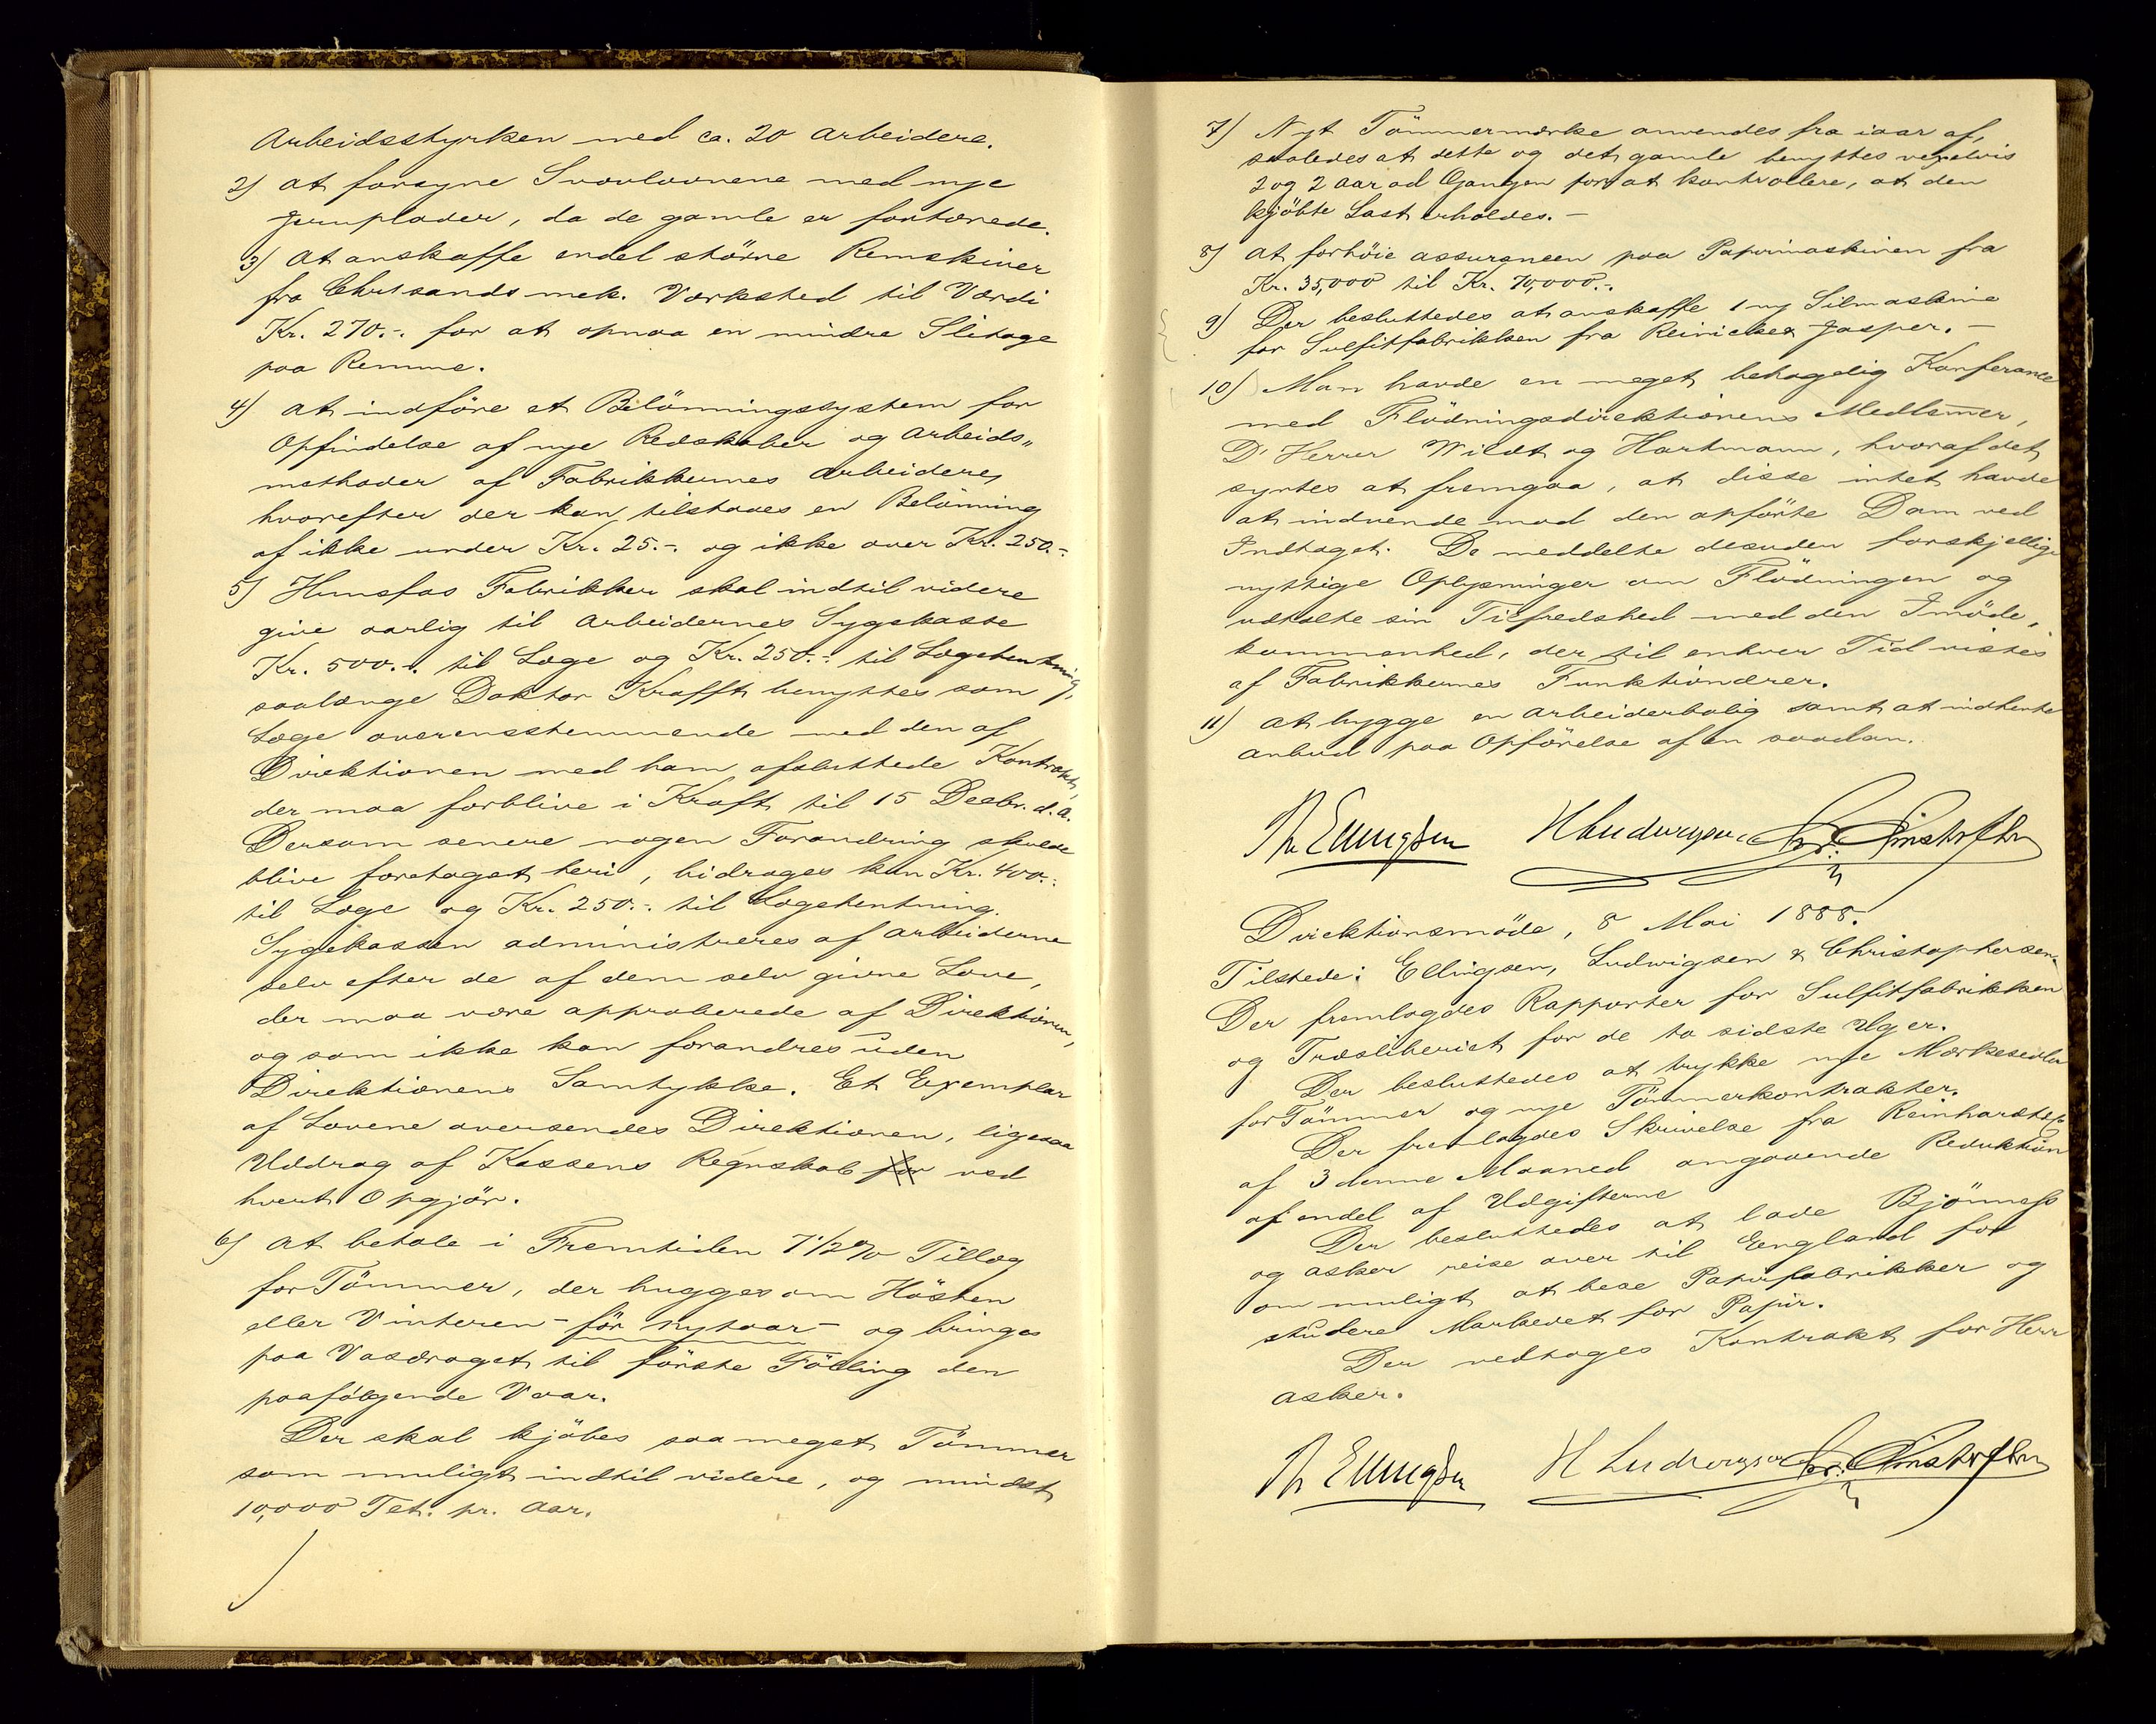 Arbeidsstyrken med ca. 20 Arbeidere.
2) At forsyne Svovlovnene med nye
Jernplader, da de gamle er fortærede.
3) At anskaffe endel större Remskiver
fra Chrisands mek. Værksted til Værdi
Kr. 270.-. for at opnaa en mindre Slitage
paa Remme.
4) At indföre et Belönningssystem for
Opfindelse af nye Redskaber og Arbeids„
methoder af Fabrikkernes Arbeidere,
hvorefter der kan tilstaaes en Belönning
af ikke under Kr. 25.-. og ikke over Kr. 250.-
5) Hunsfos Fabrikker skal indtil videre
give aarlig til Arbeidernes Sygekasse
Kr. 500.-. til Læge og Kr. 250.-. til Lægehentning,
saalænge Doktor Krafft benyttes som
Læge overensstemmende med den af
Direktionen med ham afsluttede Kontrakt,
der maa forblive i Kraft til 15 Decbr. d.A.
Dersom senere nogen Forandring skulde
blive foretaget heri, bidrages kun Kr. 400.-.
til Læge og Kr. 250.-. til Lægehentning.
Sygekassen administreres af Arbeiderne
selv efter de af dem selv givne Love,
der maa være approberede af Direktionen,
og som ikke kan forandres uden
Direktionens Samtykke. Et Exemplar
af Lovene oversendes Direktionen, ligesaa
Uddrag af Kassens Regnskab for ved
hvert Opgjör.
6) At betale i Fremtiden 7 1/2 % Tillæg
for Tömmer, der hugges om Hösten
eller Vinteren - för Nytaar - og bringes
paa Vasdraget til förste Fölling den
paafölgende Vaar.
Der skal kjöbes saa meget Tömmer
som muligt indtil videre, og mindst
10,000 Tet. pr. Aar.
7) Nyt Tömmermærke anvendes fra iaar af,
saaledes at dette og det gamle benyttes vexelvis
2 og 2 Aar ad Gangen for at kontrollere, at den
kjöbte Last erholdes. -
8) At forhöie Assurancen paa Papirmaskinen fra
Kr. 35,000 til Kr. 70,000.-.
9) Der besluttedes at anskaffe 1 ny Silmaskine
for Sulfitfabrikken fra Reinicke & Jasper. -
10) Man havde en meget behagelig Konferance
med Flödningsdirektionens Medlemmer,
D' Herrer Wildt og Hartmann, hvoraf det
syntes at fremgaa, at disse intet havde
at indvende mod den opförte Dam ved
Indtaget. De meddelte desuden forskjellige
nyttige Oplysninger om Flödningen og
udtalte sin Tilfredshed med den Imöde,
kommenhed, der til enhver Tid vistes
af Fabrikkernes Funktionærer.
11) At bygge en Arbeiderbolig samt at indhente
Anbud paa Opförelse af en saadan.
Th Ellingsen H Ludwigsen Chr. Christophersen
Direktionsmöde, 8 Mai 1888.
Tilstede: Ellingsen, Ludwigsen & Christophersen.
Der fremlagdes Rapporter for Sulfitfabrikken
og Træsliberiet for de to sidste Uger.
Der besluttedes at trykke nye Mærkesedler
for Tömmer og nye Tömmerkontrakter.
Der fremlagdes Skrivelse fra Reinhardt
af 3 denne Maaned angaaende Reduktion
af endel af Udgifterne
Der besluttedes at lade Bjönness
og Asker reise over til England for
om muligt at bese Papirfabrikker og
studere Markedet for Papir.
Der vedtoges Kontrakt for Herr
Asker.
Th Ellingsen H Ludwigsen Chr. Christophersen